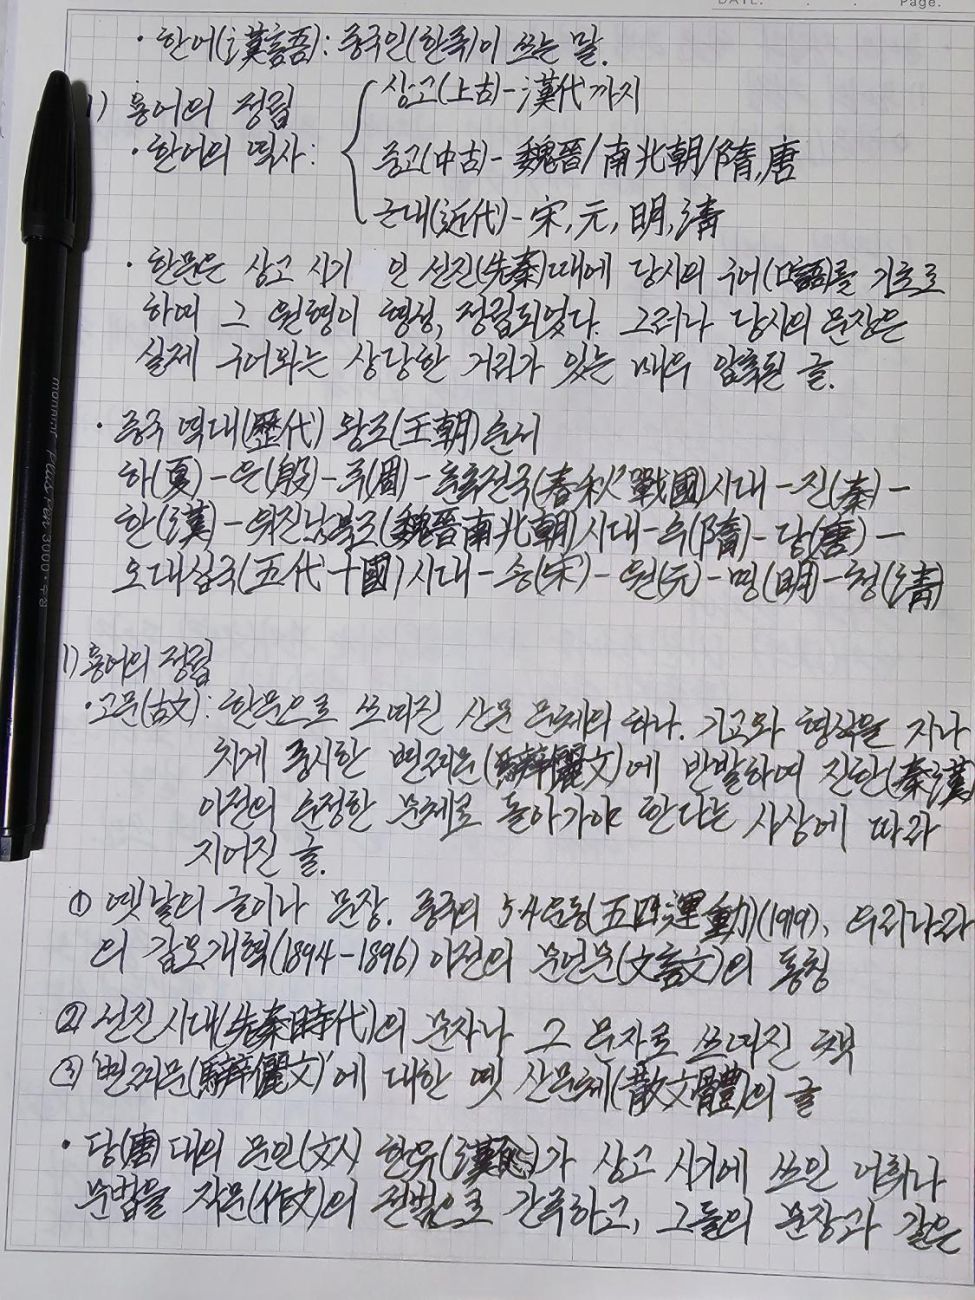 DATE. . . Page.
· 한어(漢語): 중국인(한족)이 쓰는 말.
1) 용어의 정립
· 한어의 역사:
상고(上古)-漢代까지
중고(中古)-魏晉/南北朝/隋,唐
근대(近代)-宋,元,明,淸
· 한문은 상고 시기 인 선진(先秦)때에 당시의 구어(口語)를 기초로
하여 그 원형이 형성, 정립되었다. 그러나 당시의 문장은
실제 구어와는 상당한 거리가 있는 매우 압축된 글.
· 중국 역대(歷代) 왕조(王朝)순서
하(夏)-은(殷)-주(周)-춘추전국(春秋戰國)시대-진(秦)-
한(漢)-위진남북조(魏晉南北朝)시대-수(隋)-당(唐)-
오대십국(五代十國)시대-송(宋)-원(元)-명(明)-청(淸)
1) 용어의 정립
· 고문(古文): 한문으로 쓰여진 산문 문체의 하나. 기교와 형식을 지나
치게 중시한 변려문(騈儷文)에 반발하여 진한(秦漢)
이전의 순정한 문체로 돌아가야 한다는 사상에 따라
지어진 글.
① 옛날의 글이나 문장. 중국의 5·4운동(五四運動)(1919), 우리나라
의 갑오개혁(1894-1896) 이전의 문언문(文言文)의 통칭
② 선진시대(先秦時代)의 문자나 그 문자로 쓰여진 책
③ '변려문(騈儷文)'에 대한 옛 산문체(散文體)의 글
· 당(唐)대의 문인(文人) 한유가 상고 시기에 쓰인 어휘나
문법을 작문(作文)의 전범으로 간주하고, 그들의 문장과 같은
monami Plus Pen 3000·수성